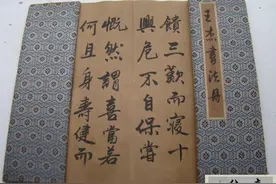 王杰書法冊
饋三歎而寢十
興危不自保當
慨然謂喜當若
何且身壽健而